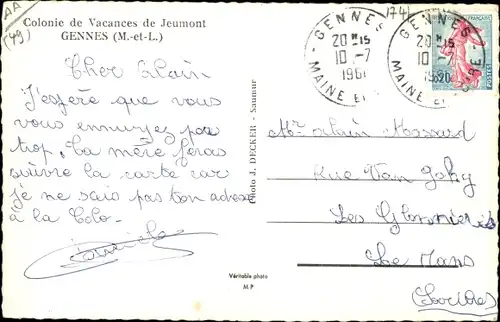 AA
(49)
Colonie de Vacances de Jeumont
GENNES (M.-et-L.)
174
GENNES
20 H 15
10 -7
1961
MAINE ET
GENNES
20 H 15
10 -7
19
MAINE
0,20
POSTES
Cher Alain
J'espère que vous
vous ennuyez pas
trop. Ta mère feras
suivre la carte car
je ne sais pas ton adresse
à la Colo.
Photo J. DECKER - Saumur
Mr Alain
Rue Van
Les
Le Mans
(Sarthe)
Véritable photo
M P